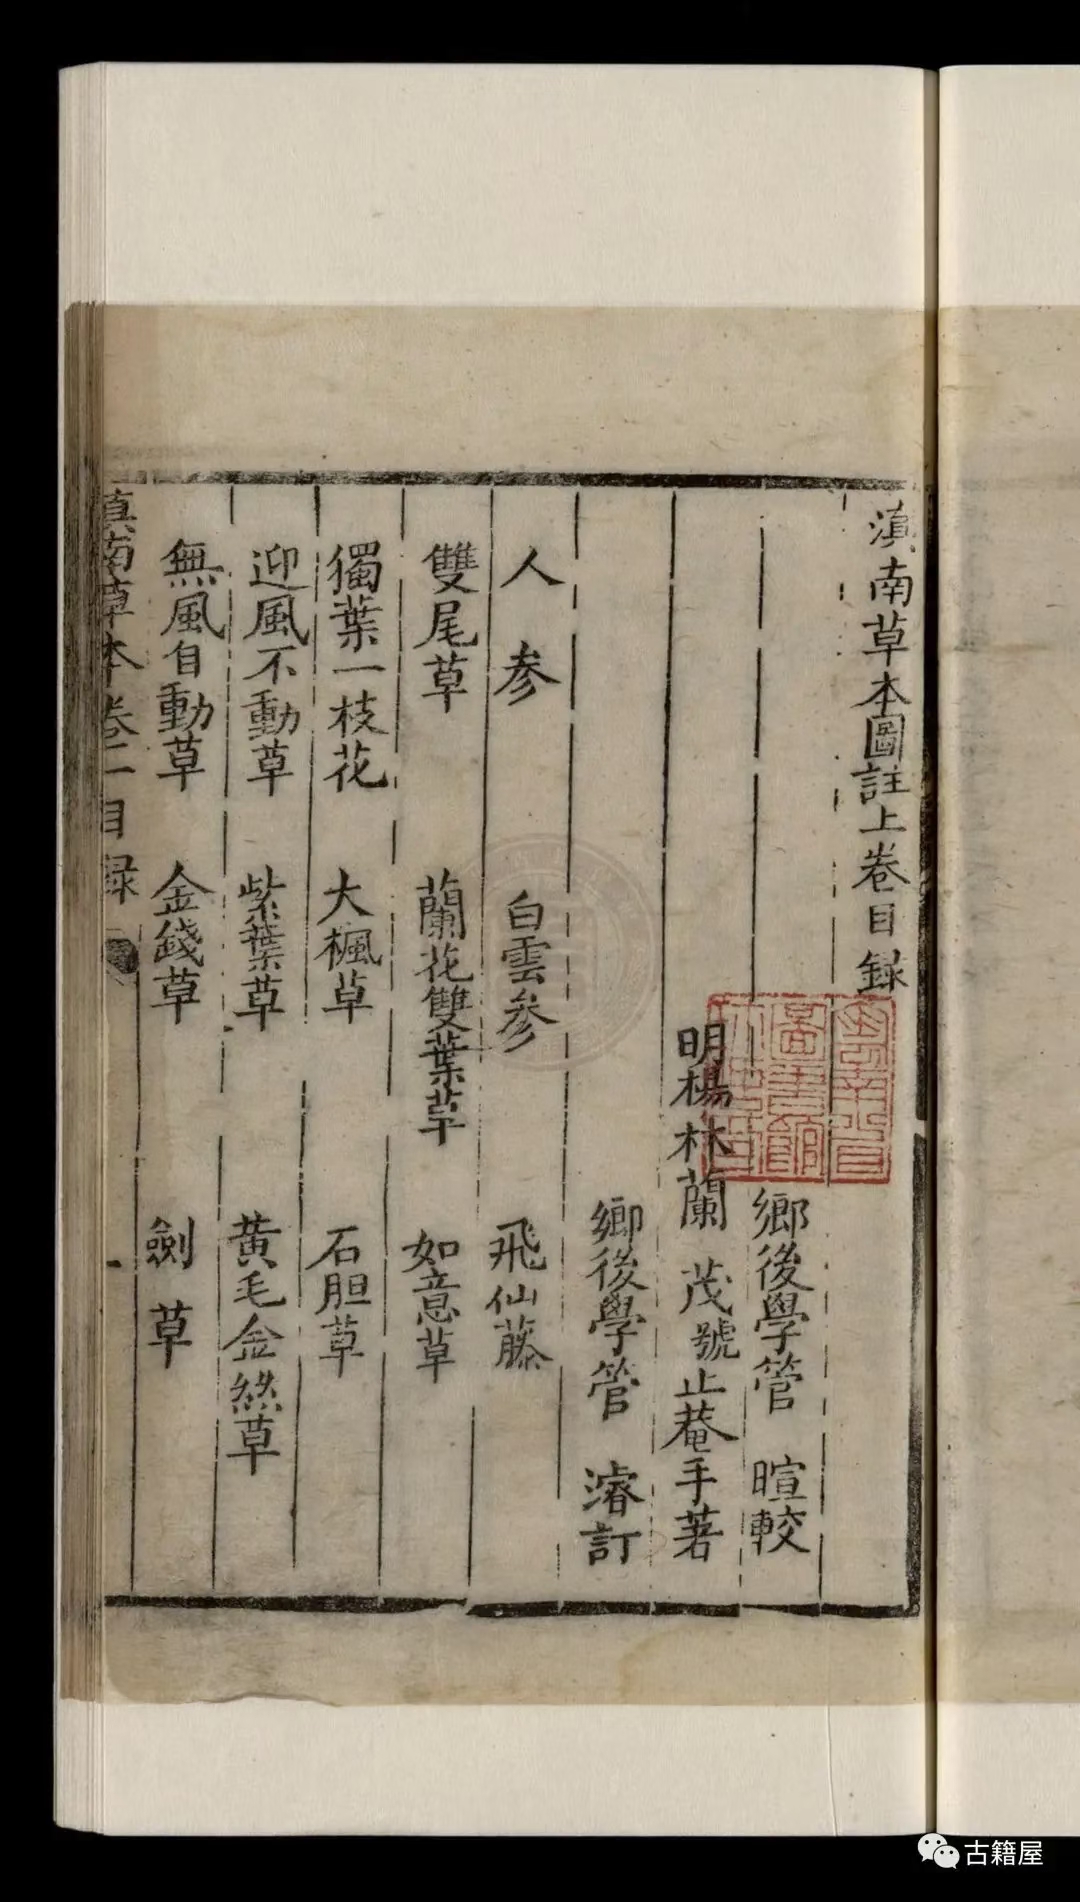 滇南草本圖註上卷目録
鄉後學管 暄較
明楊林蘭 茂號止菴手著
鄉後學管 濬訂
人参 白雲参 飛仙藤
雙尾草 蘭花雙葉草 如意草
獨葉一枝花 大楓草 石胆草
迎風不動草 紫葉草 黄毛金絲草
無風自動草 金錢草 劍草
滇南草本卷二目録 一
古籍屋